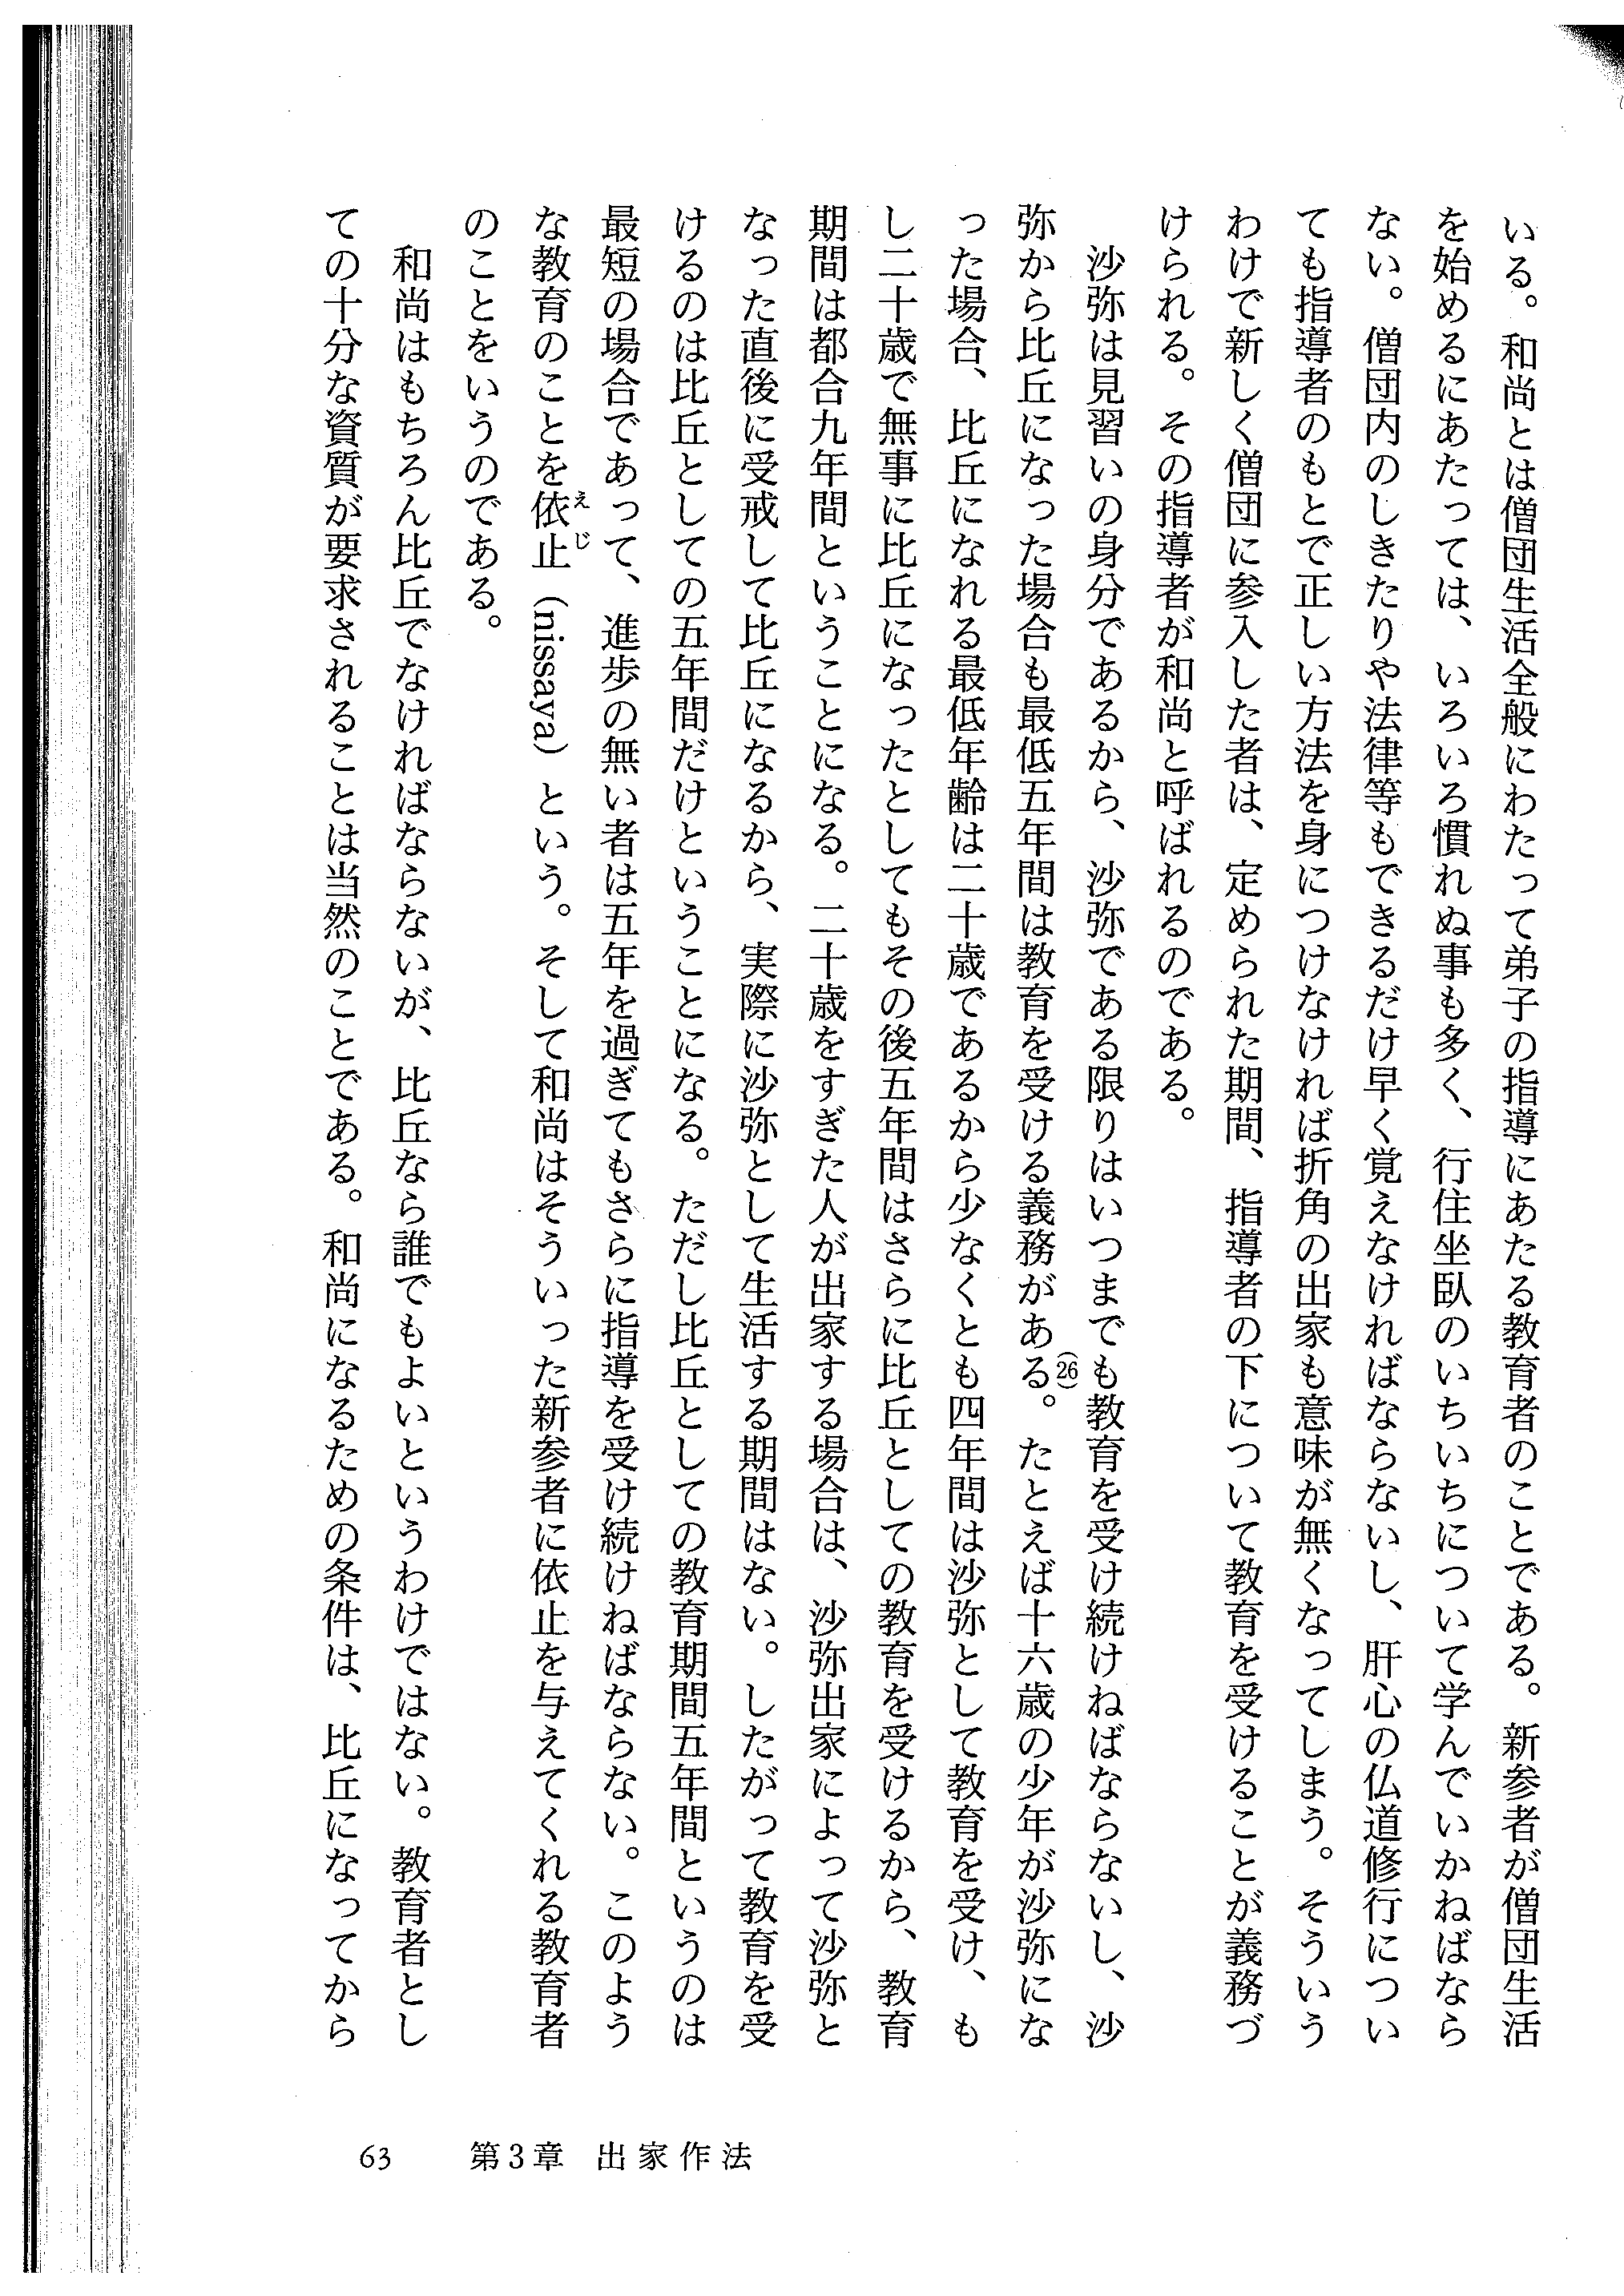 いる。和尚とは僧団生活全般にわたって弟子の指導にあたる教育者のことである。新参者が僧団生活
を始めるにあたっては、いろいろ慣れぬ事も多く、行住坐臥のいちいちについて学んでいかねばなら
ない。僧団内のしきたりや法律等もできるだけ早く覚えなければならないし、肝心の仏道修行につい
ても指導者のもとで正しい方法を身につけなければ折角の出家も意味が無くなってしまう。そういう
わけで新しく僧団に参入した者は、定められた期間、指導者の下について教育を受けることが義務づ
けられる。その指導者が和尚と呼ばれるのである。
　沙弥は見習いの身分であるから、沙弥である限りはいつまでも教育を受け続けねばならないし、沙
弥から比丘になった場合も最低五年間は教育を受ける義務がある(26)。たとえば十六歳の少年が沙弥にな
った場合、比丘になれる最低年齢は二十歳であるから少なくとも四年間は沙弥として教育を受け、も
し二十歳で無事に比丘になったとしてもその後五年間はさらに比丘としての教育を受けるから、教育
期間は都合九年間ということになる。二十歳をすぎた人が出家する場合は、沙弥出家によって沙弥と
なった直後に受戒して比丘になるから、実際に沙弥として生活する期間はない。したがって教育を受
けるのは比丘としての五年間だけということになる。ただし比丘としての教育期間五年間というのは
最短の場合であって、進歩の無い者は五年を過ぎてもさらに指導を受け続けねばならない。このよう
な教育のことを依止（nissaya）という。そして和尚はそういった新参者に依止を与えてくれる教育者
えじ
のことをいうのである。
　和尚はもちろん比丘でなければならないが、比丘なら誰でもよいというわけではない。教育者とし
ての十分な資質が要求されることは当然のことである。和尚になるための条件は、比丘になってから
63　第3章　出家作法